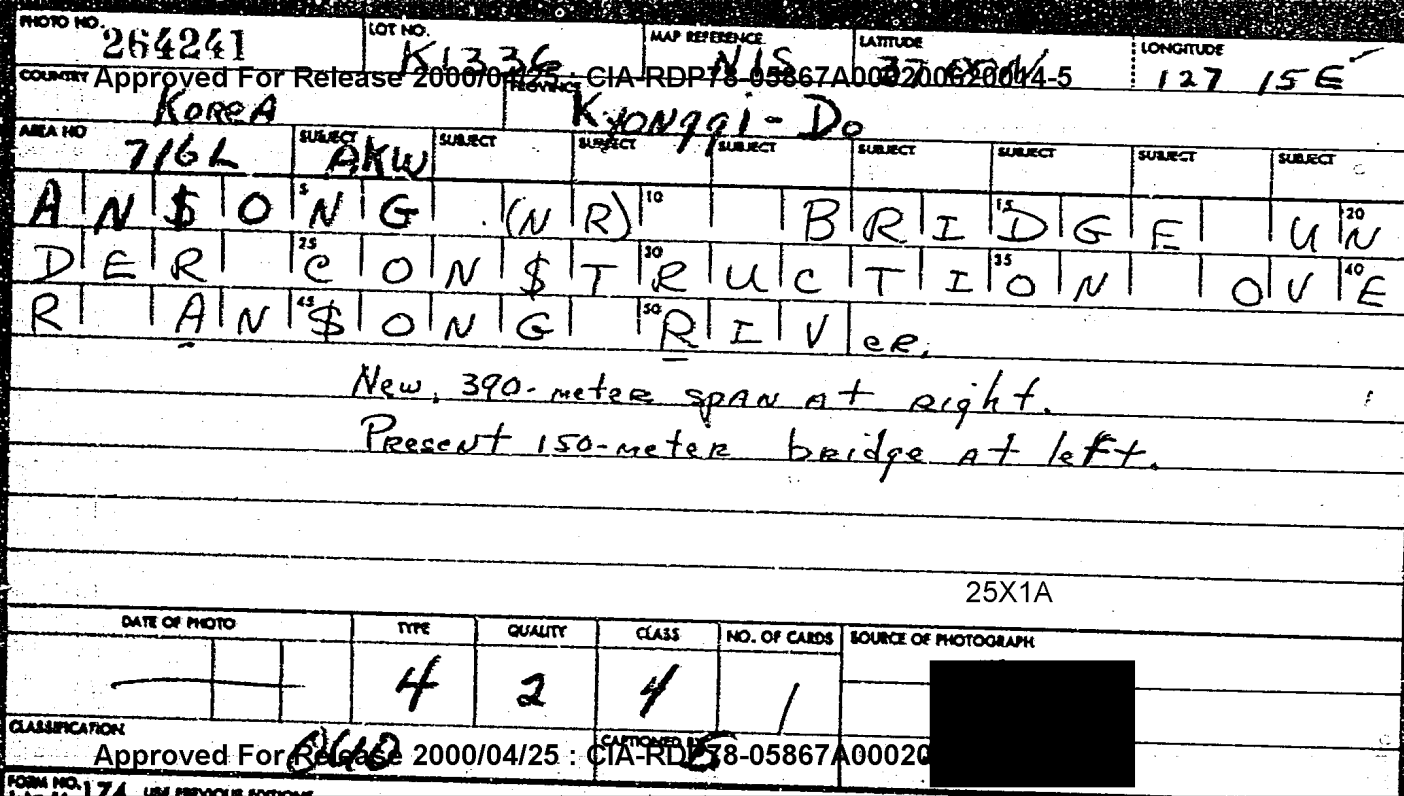 PHOTO NO. 264241 LOT NO. K1336 MAP REFERENCE NIS LATITUDE 37 LONGITUDE 127 15 E
Approved For Release 2000/04/25 : CIA-RDP78-05867A000200620014-5
COUNTRY KOREA PROVINCE Kyonggi-Do
AREA NO 716L SUBJECT AKW SUBJECT SUBJECT SUBJECT SUBJECT SUBJECT SUBJECT SUBJECT
AN$ONG (NR) BRIDGE UN
DER CON$TRUCTION OVE
R AN$ONG RIVER.
New, 390-meter span at right.
Present 150-meter bridge at left.
25X1A
DATE OF PHOTO TYPE QUALITY CLASS NO. OF CARDS SOURCE OF PHOTOGRAPH
4 2 4 1
CLASSIFICATION CAPTIONED BY
Approved For Release 2000/04/25 : CIA-RDP78-05867A00020
FORM NO. 174 USE PREVIOUS EDITIONS